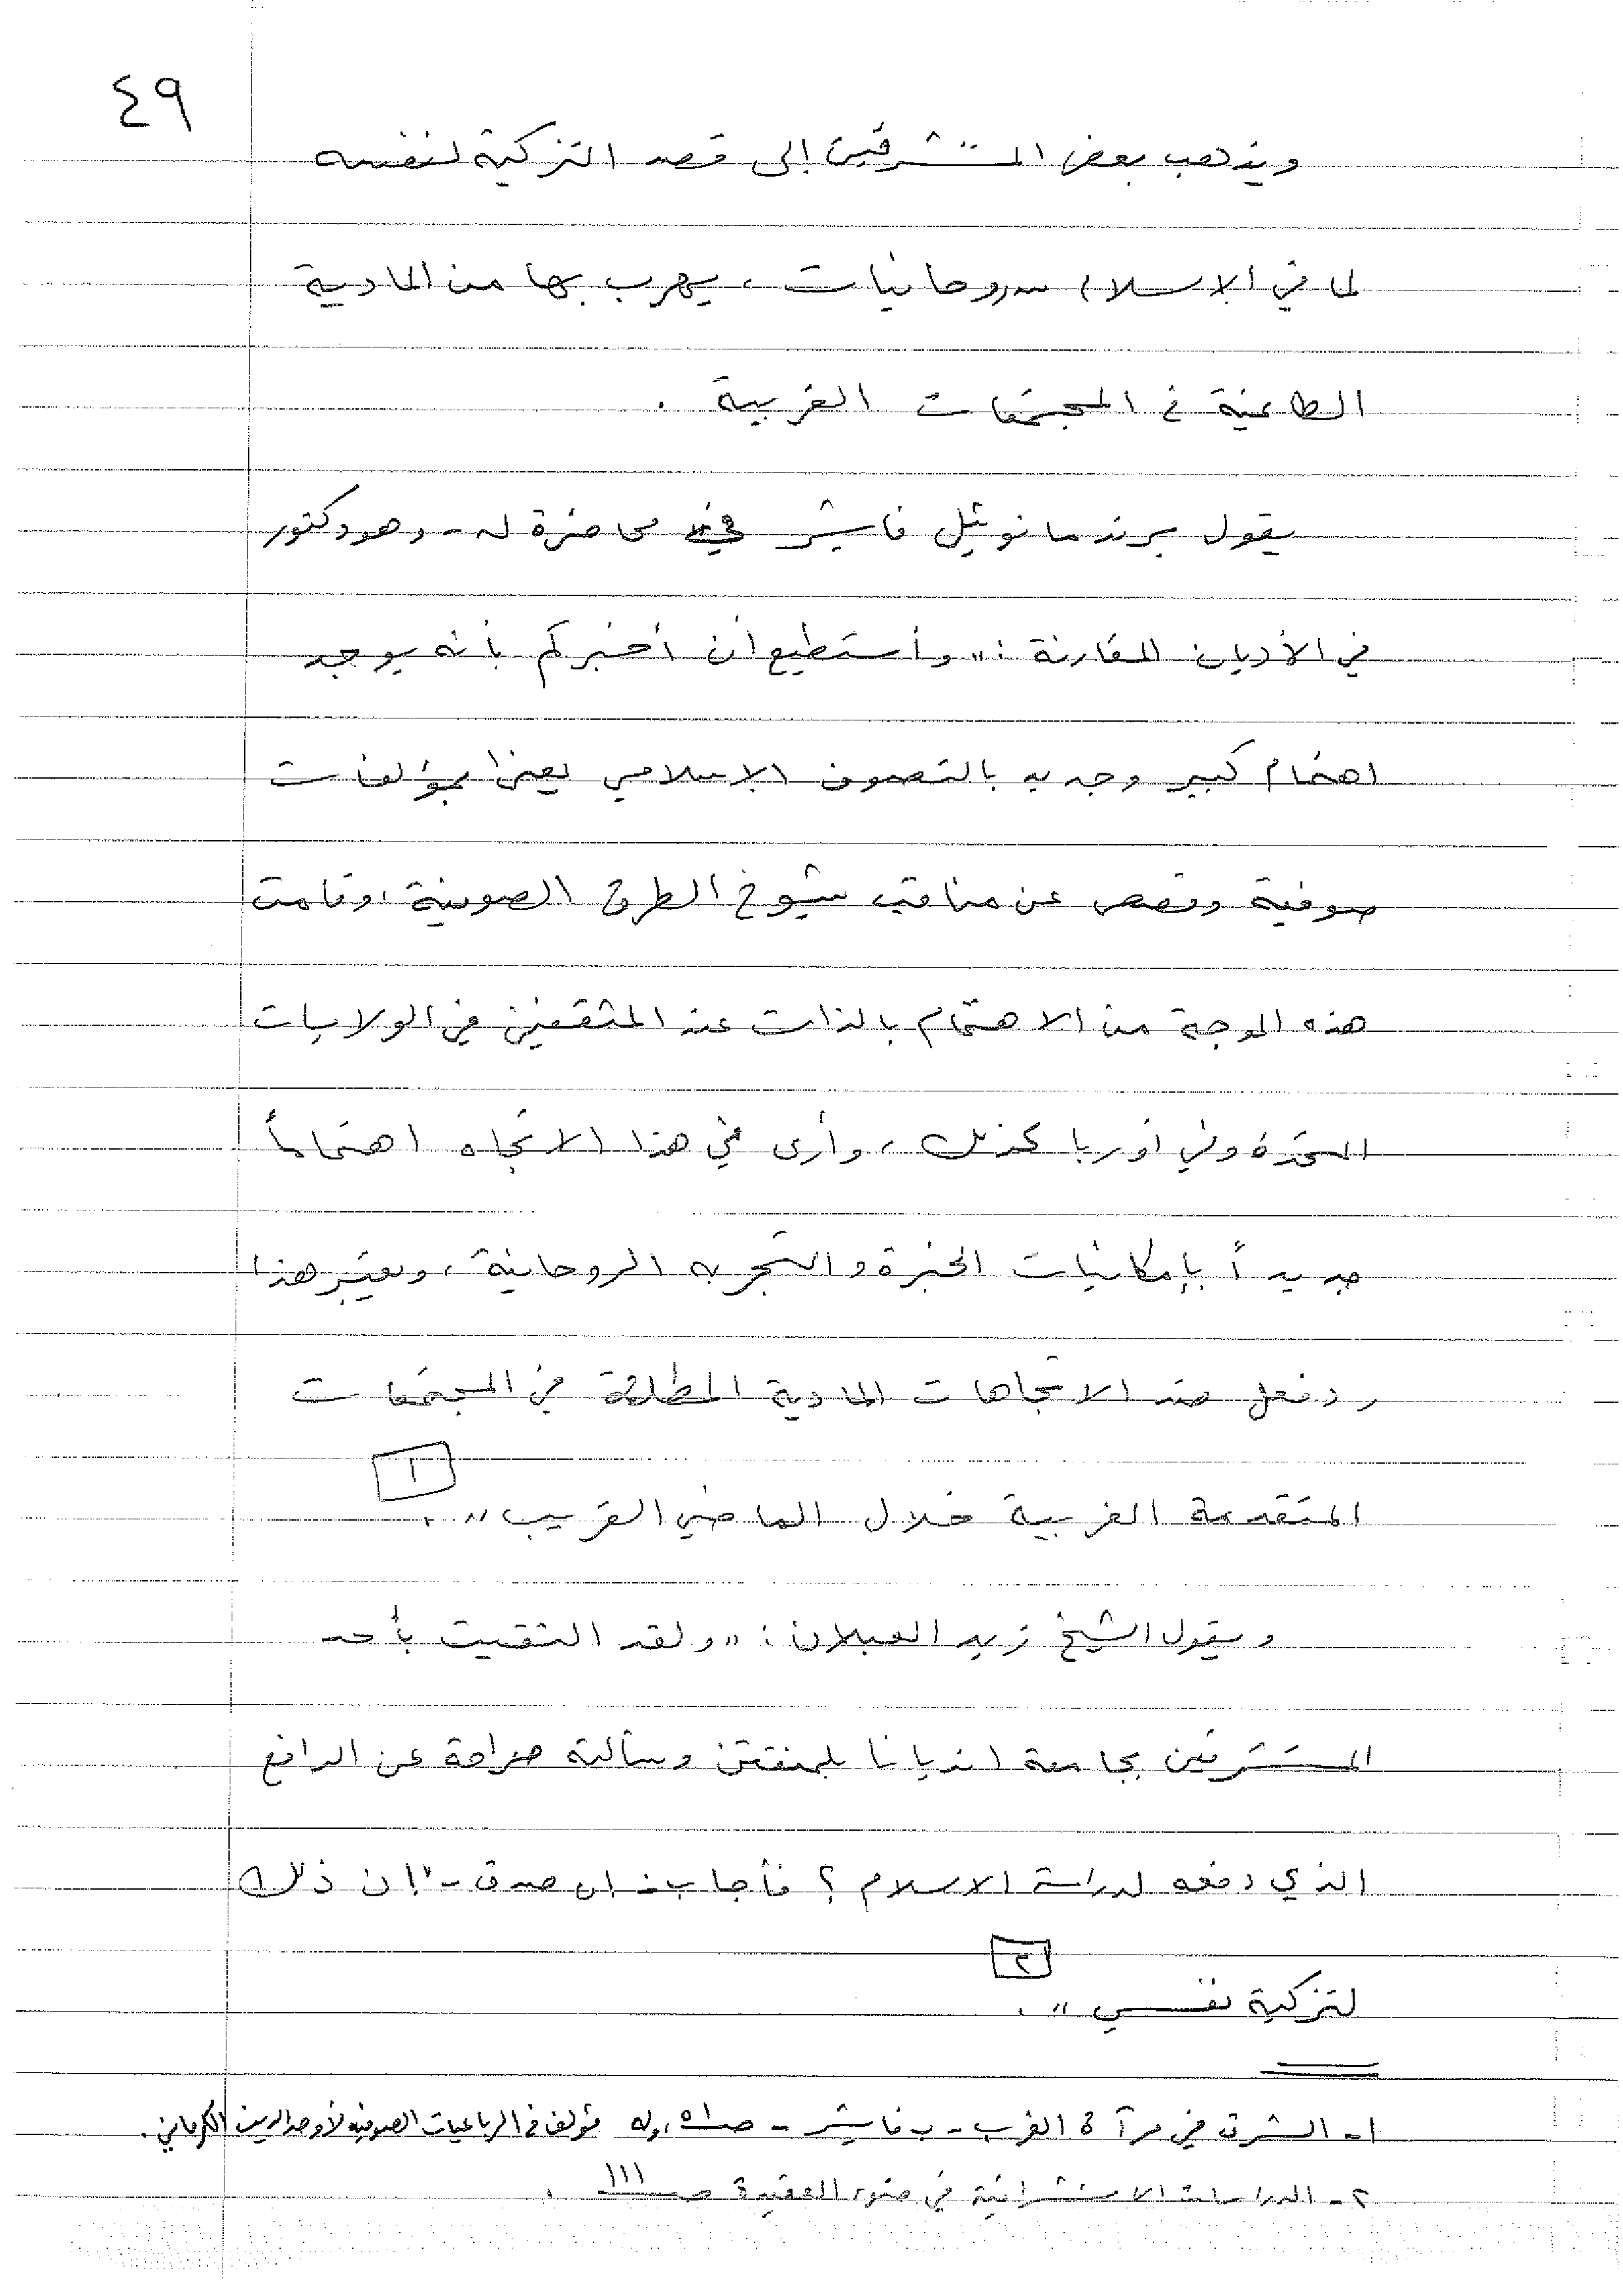 ٤٩
ويذهب بعض المستشرقين إلى قصد التزكية لنفسه
لما في الإسلام من روحانيات ، يهرب بها من المادية
الطاغية في المجتمعات الغربية .
يقول برند مانوئيل فايشر في محاضرة له - وهو دكتور
في الأديان المقارنة : " وأستطيع أن أخبركم بأنه يوجد
اهتمام كبير وجديد بالتصوف الإسلامي يعنى بمؤلفات
صوفية وقصص عن مناقب شيوخ الطرق الصوفية ، وقامت
هذه الموجة من الاهتمام بالذات عند المثقفين في الولايات
المتحدة وفي أوربا كذلك ، وأرى في هذا الاتجاه اهتماماً
جديداً بإمكانيات الخبرة والتجربة الروحانية ، ويعتبر هذا
رد فعل ضد الاتجاهات المادية المطلقة في المجتمعات
المتقدمة الغربية خلال الماضي القريب " . [١]
ويقول الشيخ زيد العبلان : " ولقد التقيت بأحد
المستشرقين بجامعة انديانا بلمنقتن وسألته صراحة عن الدافع
الذي دفعه لدراسة الاسلام ؟ فأجاب - إن صدق - " إن ذلك
لتزكية نفسي " . [٢]
١ - الشرق في مرآة الغرب - ب فايشر - ص ٥١ ، وله مؤلف في الرباعيات الصوفية لأوحد الدين الكرماني .
٢ - الدراسات الاستشراقية في ضوء العقيدة ص ١١١ .